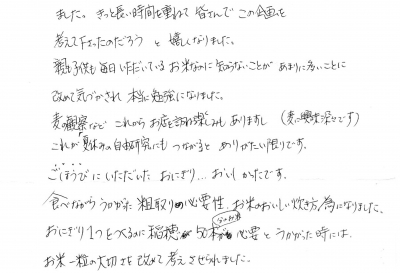 ました。きっと長い時間を重ねて皆さんでこの企画を
考えて下さったのだろうと嬉しくなりました。
親も子供も毎日いただいているお米なのに知らないことがあまりに多いことに
改めて気づかされ本当に勉強になりました。
麦の観察など これからお店を訪れる楽しみもありますし (麦に興味深々です)
これが「夏休みの自由研究にもつながると ありがたい限りです。
ごほうびにいただいたおにぎり… おいしかったです。
食べながらうかがった粗取りの必要性、お米のおいしい炊き方 為になりました。
おにぎり1つをつくるのに稲穂が50本 必要とうかがった時には、
お米一粒の大切さを改めて考えさせられました。